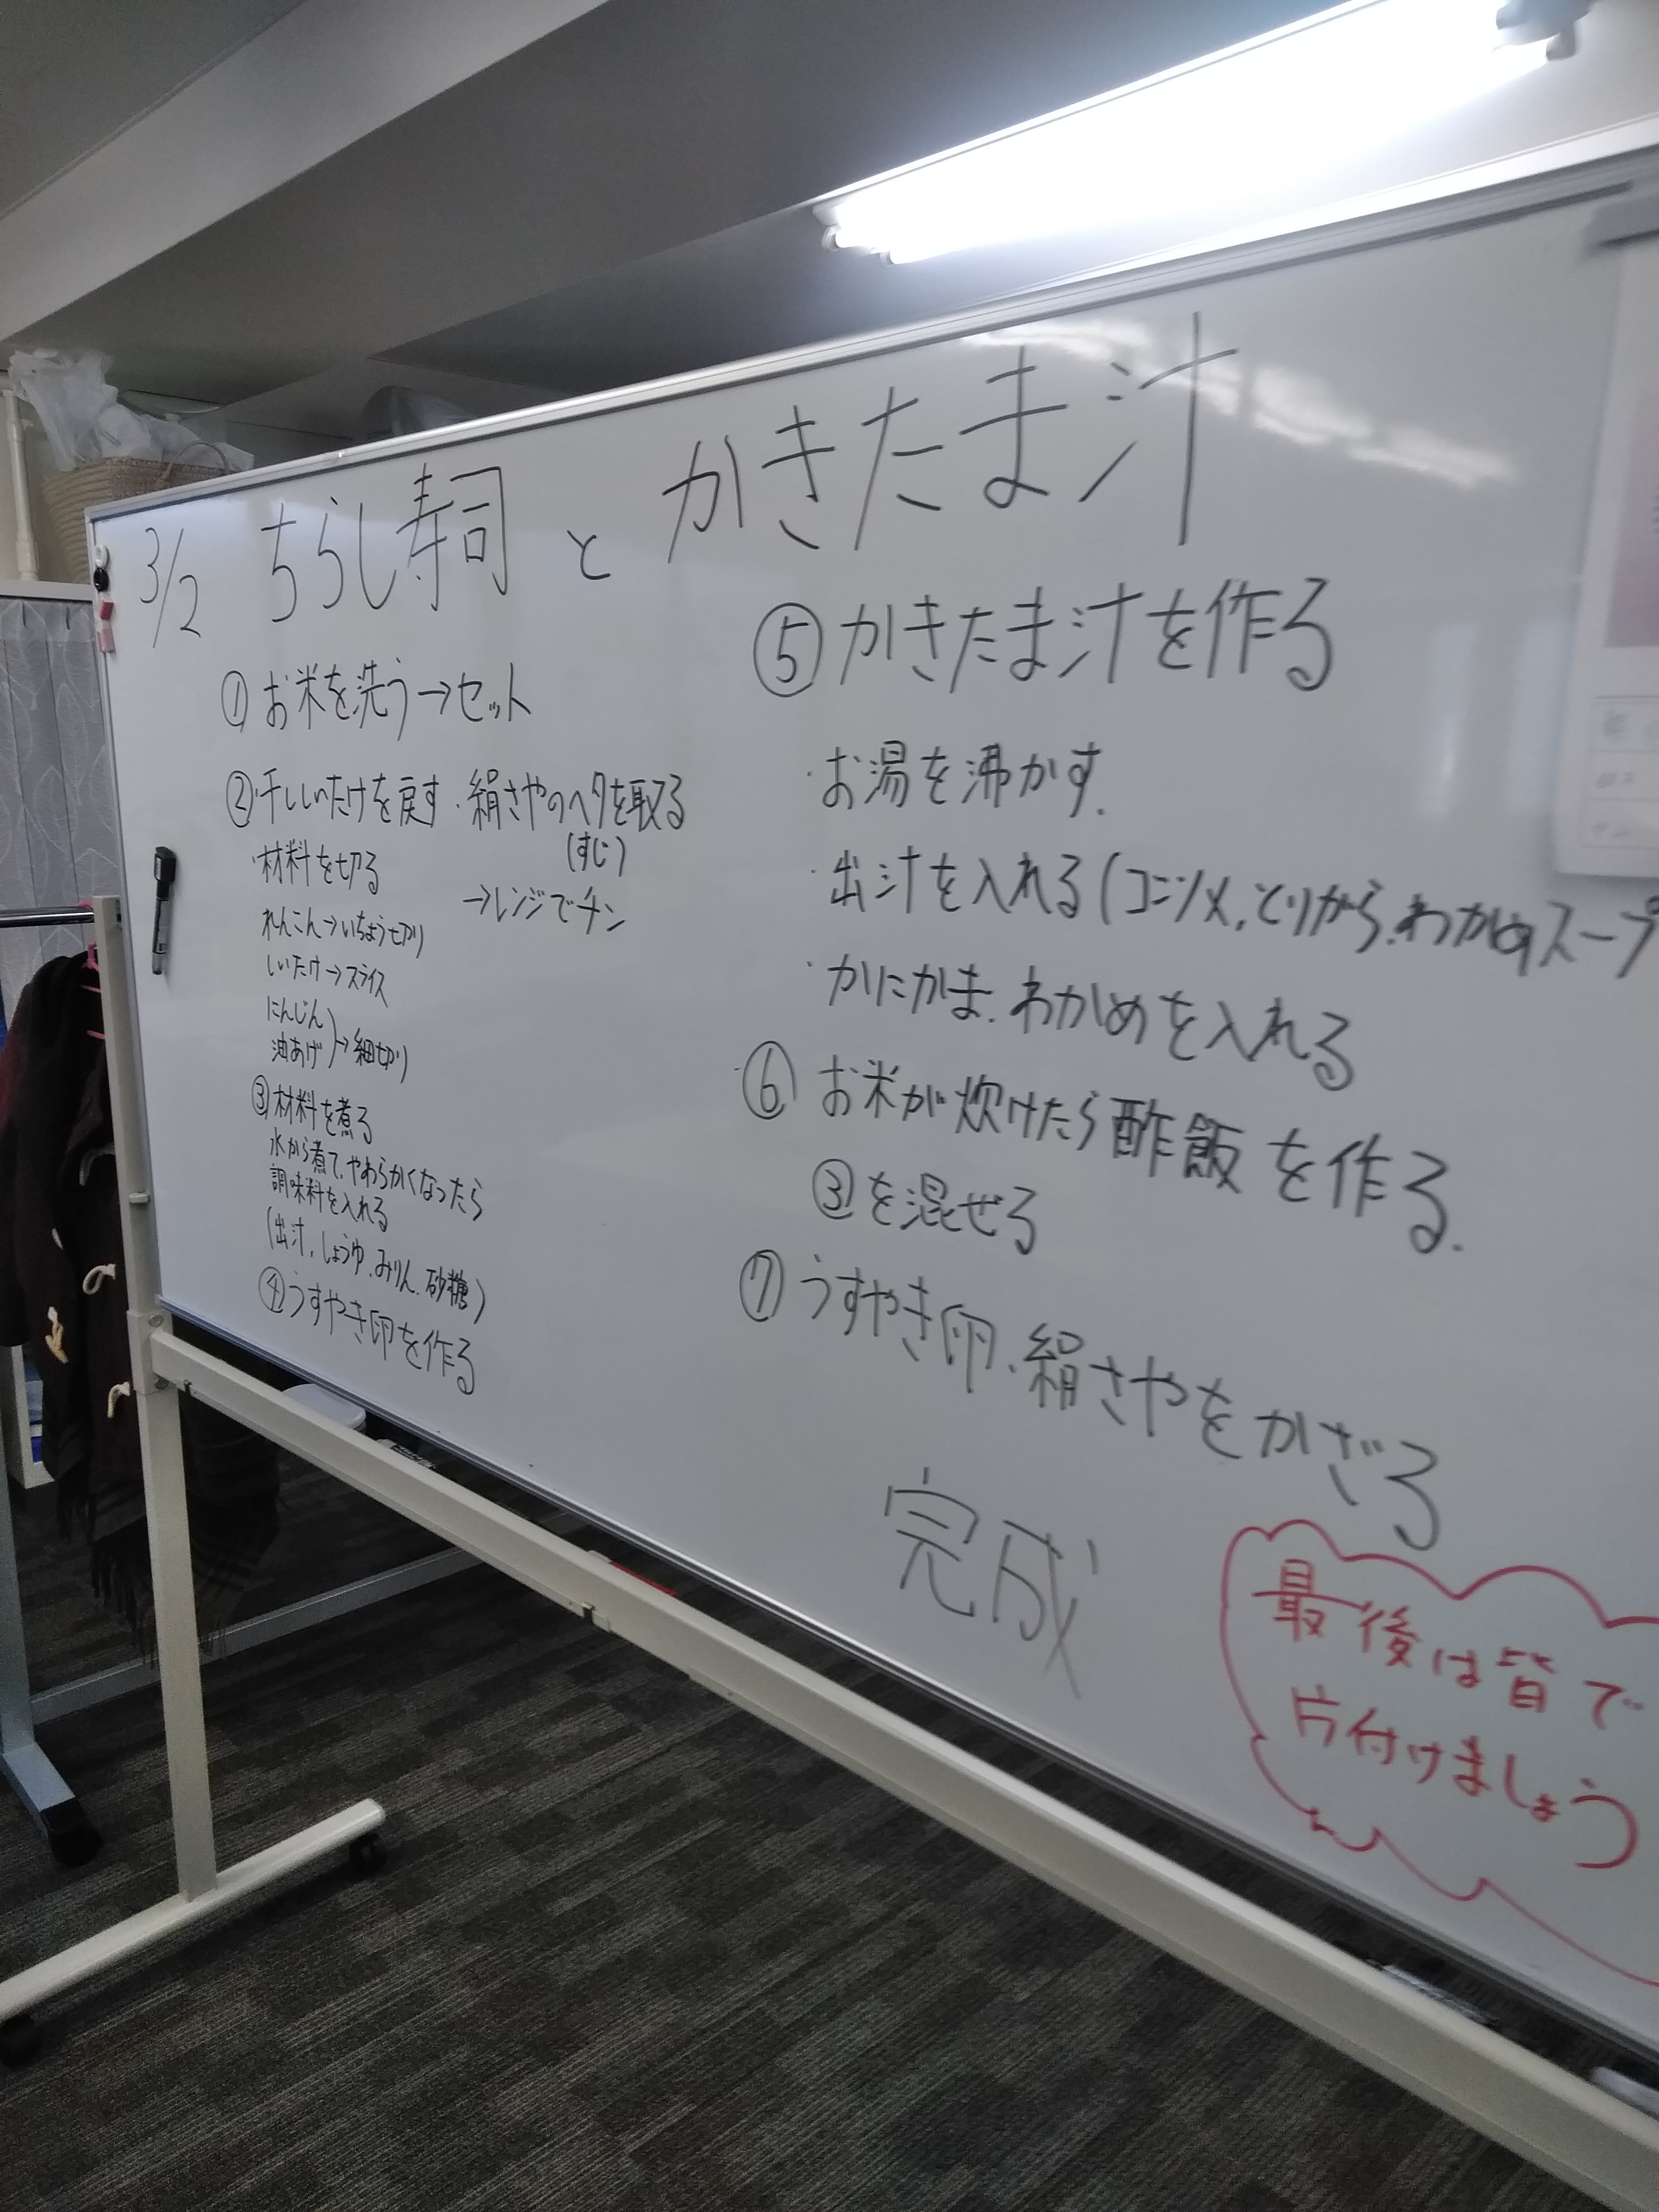 3/2 ちらし寿司 と かきたま汁
① お米を洗う→セット
②・干ししいたけを戻す ・絹さやのヘタを取る
(すじ)
・材料を切る
→レンジでチン
れんこん→いちょう切り
しいたけ→スライス
にんじん
油あげ )→細切り
③材料を煮る
水から煮て、やわらかくなったら
調味料を入れる
(出汁、しょうゆ、みりん、砂糖)
④うすやき卵を作る
⑤かきたま汁を作る
・お湯を沸かす.
・出汁を入れる(コンソメ、とりがら、わかめスープ
・かにかま、わかめを入れる
⑥ お米が炊けたら酢飯を作る.
③を混ぜる
⑦ うすやき卵、絹さやをかざる
完成
最後は皆で
片付けましょう